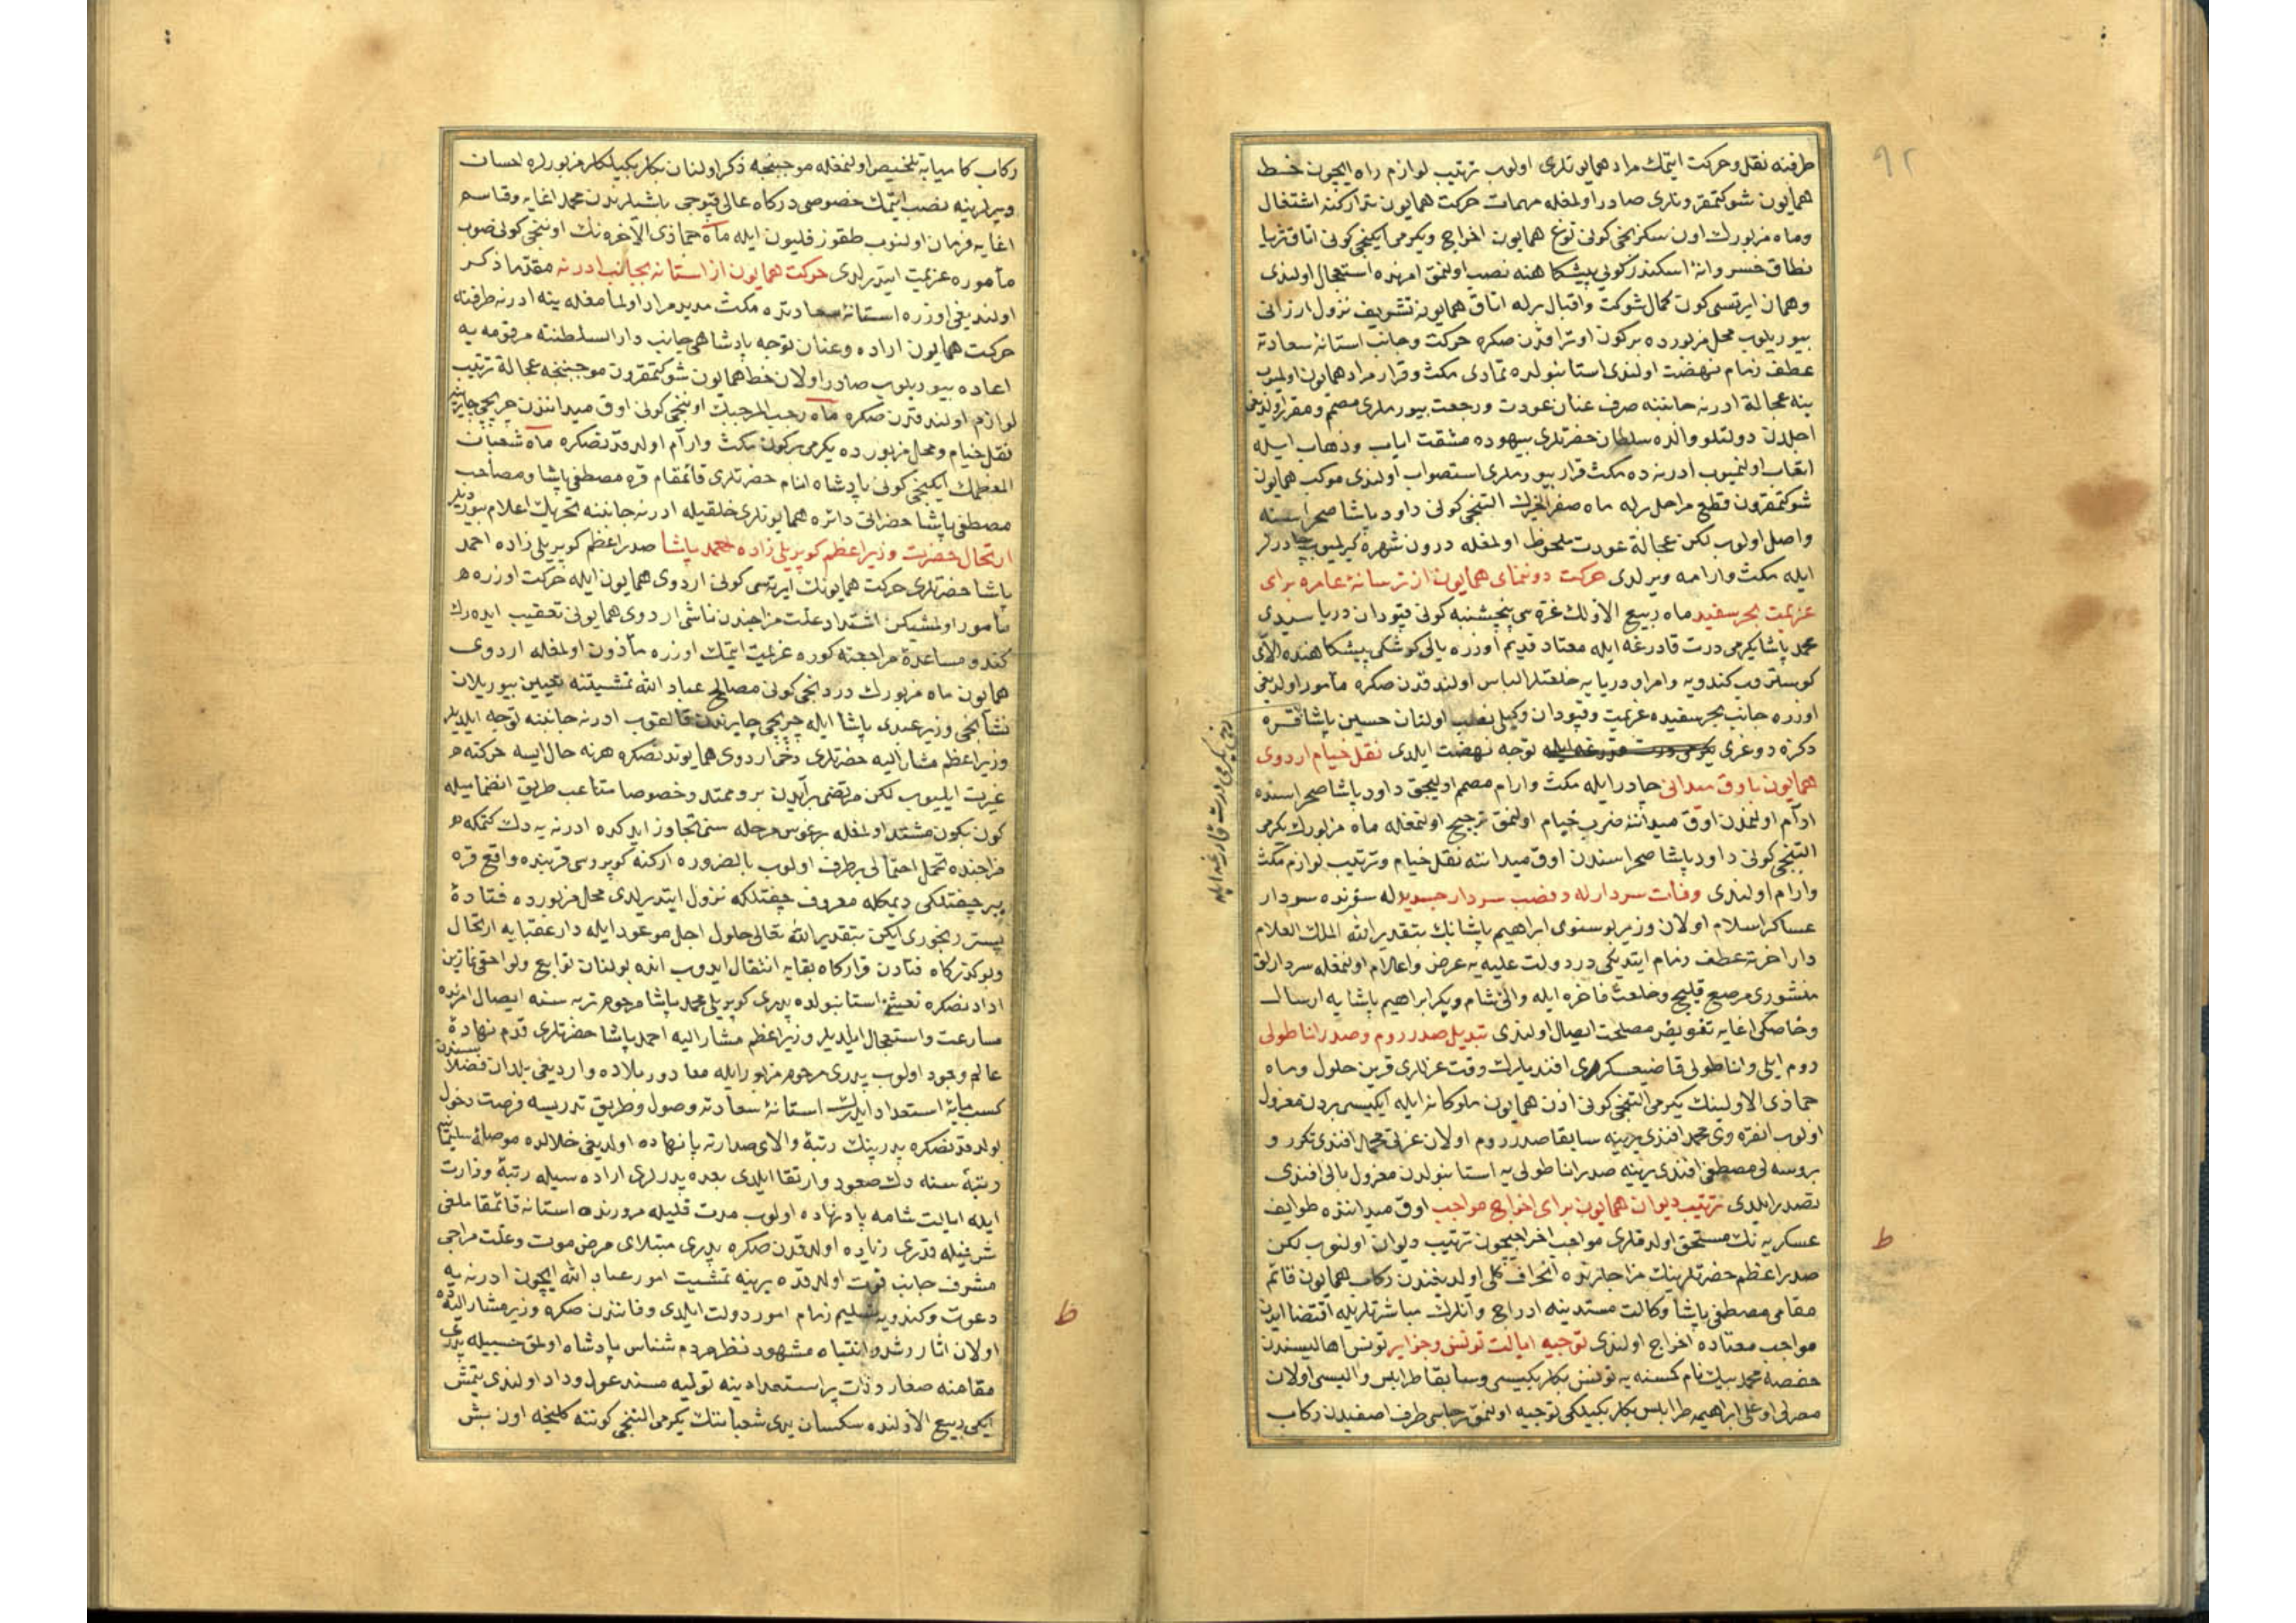 ٩٢
طرفنه نقل و حركت ايتمك مراد همايونلرى اولوب ترتيب لوازم راه ايچون خط
همايون شوكتمقرونلرى صادر اولمغله مهمات حركت همايون تداركنه اشتغال
وماه مزبورك اون سكزنجى كونى توغ همايون اخراج ويكرمى ايكنجى كونى اتاق ثريا
نطاق خسروانۀ اسكندر كونى پيشكاهنه نصب اولنمق امرنده استعجال اولندى
وهمان ايرتسى كون كمال شوكت واقبال برله اتاق همايونه تشريف نزول ارزانى
بيوريلوب محل مزبورده بر كون اوتراقدن صكره حركت وجانب استانۀ سعادته
عطف زمام نهضت اولندى استانبولده تمادى مكث وقرار مراد همايون اولميوب
ينه عجالة ادرنه جانبنه صرف عنان عودت ورجعت بيورملرى مصمم ومقرر اولديغى
اجلدن دولتلو والده سلطان حضرتلرى بيهوده مشقت اياب وذهاب ايله
اتعاب اولنميوب ادرنه ده مكث قرار بيورملرى استصواب اولندى موكب همايون
شوكتمقرون قطع مراحل برله ماه صفر الخيرك التنجى كونى داود پاشا صحراسنه
واصل اولوب لكن عجالة عودت ملحوظ اولمغله درون شهره كيرلميوب چادرلر
ايله مكث وارامه ويرلدى حركت دوننماى همايون از ترسانۀ عامره براى
عزيمت بحر سفيد ماه ربيع الاولك غره سى پنجشنبه كونى قپودان دريا سيدى
محمد پاشا يكرمى درت قادرغه ايله معتاد قديم اوزره يالى كوشكى پيشكاهنده الاى
كوستروب كندويه وامراى دريايه خلعتلر الباس اولندقدن صكره مأمور اولديغى
اوزره جانب بحر سفيده عزيمت وقپودان وكيلى نصب اولنان حسين پاشا قره
دكزه دوغرى يكرمى درت قدرغه ايله توجه نهضت ايلدى نقل خيام اردوى
دخى يكرمى درت قادرغه ايله
همايون باوق ميدانى چادر ايله مكث وارام مصمم اوليجق داود پاشا صحراسنده
ارام اولنمدن اوق ميداننه ضرب خيام اولنمق ترجيح اولنمغله ماه مزبورك يكرمى
التنجى كونى داود پاشا صحراسندن اوق ميداننه نقل خيام وترتيب لوازم مكث
وارام اولندى وفات سردار له ونصب سردار جديد له سؤرنده سردار
عساكر اسلام اولان وزير بوسنوى ابراهيم پاشانك بتقدير الله الملك العلام
دار اخرته عطف زمام ايتديكى در دولت عليه يه عرض واعلام اولنمغله سردارلق
منشورى مرصع قليچ وخلعت فاخره ايله والئ شام ديكر ابراهيم پاشايه ارسال
وخاصكى اغايه تفويض مصلحت ايصال اولندى تبديل صدر روم وصدر اناطولى
روم ايلى واناطولى قاضيعسكرى افنديلرك وقت عزللرى قرين حلول وماه
جماذى الاولينك يكرمى التنجى كونى اذن همايون ملوكانه ايله ايكيسى بردن معزول
اولوب انقره وى محمد افندى يرينه سابقا صدر روم اولان عزتى محمد افندى تكرر و
بروسه لى مصطفى افندى يرينه صدر اناطولى يه استانبولدن معزول بالى افندى
تصدر ايلدى ترتيب ديوان همايون براى اخراج مواجب اوق ميداننده طوايف
عسكريه نك مستحق اولدقلرى مواجب اخراجيچون ترتيب ديوان اولنوب لكن
ط
صدر اعظم حضرتلرينك مزاجلرنده انحراف كلى اولديغندن ركاب همايون قائم
مقامى مصطفى پاشا وكالت مسندينه ادراج وانلرك مباشرتلريله اقتضا ايدن
مواجب معتاده اخراج اولندى توجيه ايالت تونس وجزاير تونس اهاليسندن
حفصه محمد بيك نام كسنه يه تونس بكلربكيسى وسابقا طرابلس واليسى اولان
مصرلى اوغلى ابراهيمه طرابلس بكلربكيلكى توجيه اولنمق رجاسى طرف اصفيدن ركاب
ركاب كاميابه تلخيص اولنمغله موجبنجه ذكر اولنان بكلربكيلكلر مزبورلره احسان
ويرلرينه نصب ايتمك خصوصى دركاه عالى قپوجى باشيلرندن محمد اغايه وقاسم
اغايه فرمان اولنوب طقوز قليون ايله ماه جماذى الآخره نك اوننجى كونى صوب
مأموره عزيمت ايتديرلدى حركت همايون از استانه بجانب ادرنه مقدما ذكر
اولنديغى اوزره استانۀ سعادتده مكث مديد مراد اولمامغله ينه ادرنه طرفنه
حركت همايون اراده وعنان توجه پادشاهى جانب دار السلطنۀ مرقومه يه
اعاده بيوريلوب صادر اولان خط همايون شوكتمقرون موجبنجه عجالة ترتيب
لوازم اولندقدن صكره ماه رجب المرجبك اوننجى كونى اوق ميداننن چرپچى چايرينه
نقل خيام ومحل مزبورده يكرمى بر كون مكث وارام اولندقدنصكره ماه شعبان
المعظمك ايكنجى كونى پادشاه انام حضرتلرى قائمقام قره مصطفى پاشا ومصاحب
مصطفى پاشا حضراتى دائره همايونلرى خلقيله ادرنه جانبنه تحريك اعلام بيورديلر
ارتحال حضرت وزير اعظم كوپريلى زاده احمد پاشا صدر اعظم كوپريلى زاده احمد
پاشا حضرتلرى حركت همايونك ايرتسى كونى اردوى همايون ايله حركت اوزره
مأمور اولمشيكن اشتداد علت مزاجندن ناشى اردوى همايونى تعقيب ايده رك
كندو مساعدۀ مزاجنه كوره عزيمت ايتمك اوزره مأذون اولمغله اردوى
همايون ماه مزبورك دردنجى كونى مصالح عباد الله تمشيتنه تعيين بيوريلان
نشانجى وزير عبدى پاشا ايله چرپچى چايرندن قالقوب ادرنه جانبنه توجه ايلديلر
وزير اعظم مشار اليه حضرتلرى دخى اردوى همايوندنصكره هر نه حال ايسه حركته
غيرت ايليوب لكن مرتضى برآيدن برو ممتد وخصوصا متاعب طريق انضماميله
كون بكون مشتد اولمغله برغوس مرحله سنى تجاوز ايدكده ادرنه يه دك كتمكه
مزاجنده تحمل احتمالى برطرف اولوب بالضروره اركنه كوپريسى قربنده واقع قره
ببر چفتلكى ديمكله معروف چفتلكه نزول ايتديرلدى محل مزبورده فتادۀ
بستر رنجورى ايكن بتقدير الله تعالى حلول اجل موعود ايله دار عقبايه ارتحال
وبو كذركاه فنادن قراركاه بقايه انتقال ايدوب انده بولنان توابع ولواحقى نمازين
ادادنصكره نعشنى استانبولده پدرى كوپريلى محمد پاشا مرحوم تربه سنه ايصال امرنده
مسارعت واستعجال ايلديلر وزير اعظم مشار اليه احمد پاشا حضرتلرى قدم نهادۀ
عالم وجود اولوب پدرى مرحوم مزبور ايله معا دور بلاده وارديغى بلدان فضلاسندن
كسب مايۀ استعداد ايدرك استانۀ سعادته وصول وطريق تدريسه فرصت دخول
بولدقدنصكره پدرينك رتبۀ والاى صدارته پا نهاده اولديغى خلالده موصلۀ سليمانيه
رتبۀ سنه دك صعود وارتقا ايلدى بعده پدرلرى اراده سيله رتبۀ وزارت
ايله ايالت شامه پا نهاده اولوب مدت قليله مرورنده استانه قائمقاملغى
شرفيله قدرى زياده اولدقدن صكره پدرى مبتلاى مرض موت وعلت مزاجى
مشرف جانب فوت اولدقده يرينه تمشيت امور عباد الله ايچون ادرنه يه
دعوت وكندويه تسليم زمام امور دولت ايلدى وفاتندن صكره وزير مشار اليهده
ط
اولان اثار رشد وانتباه مشهود نظر مردم شناس پادشاه اولمق حسبيله پدرى
مقامنه صغار وذات پر استعدادينه توليه مسند عدل وداد اولندى يتمش
ايكى ربيع الاولنده سكسان يدى شعباننك يكرمى التنجى كوننه كلنجه اون بش